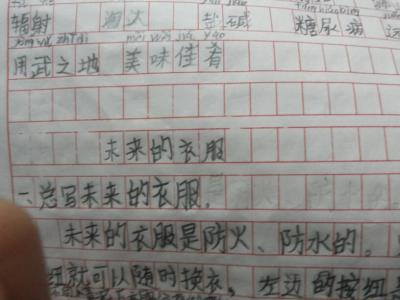 辐射 淘汰 盐碱 糖尿病
yòng wǔ zhī dì měi wèi jiā yáo
用武之地 美味佳肴
未来的衣服
一、总写未来的衣服。
未来的衣服是防火、防水的。
钮就可以随时换衣,左边的按钮